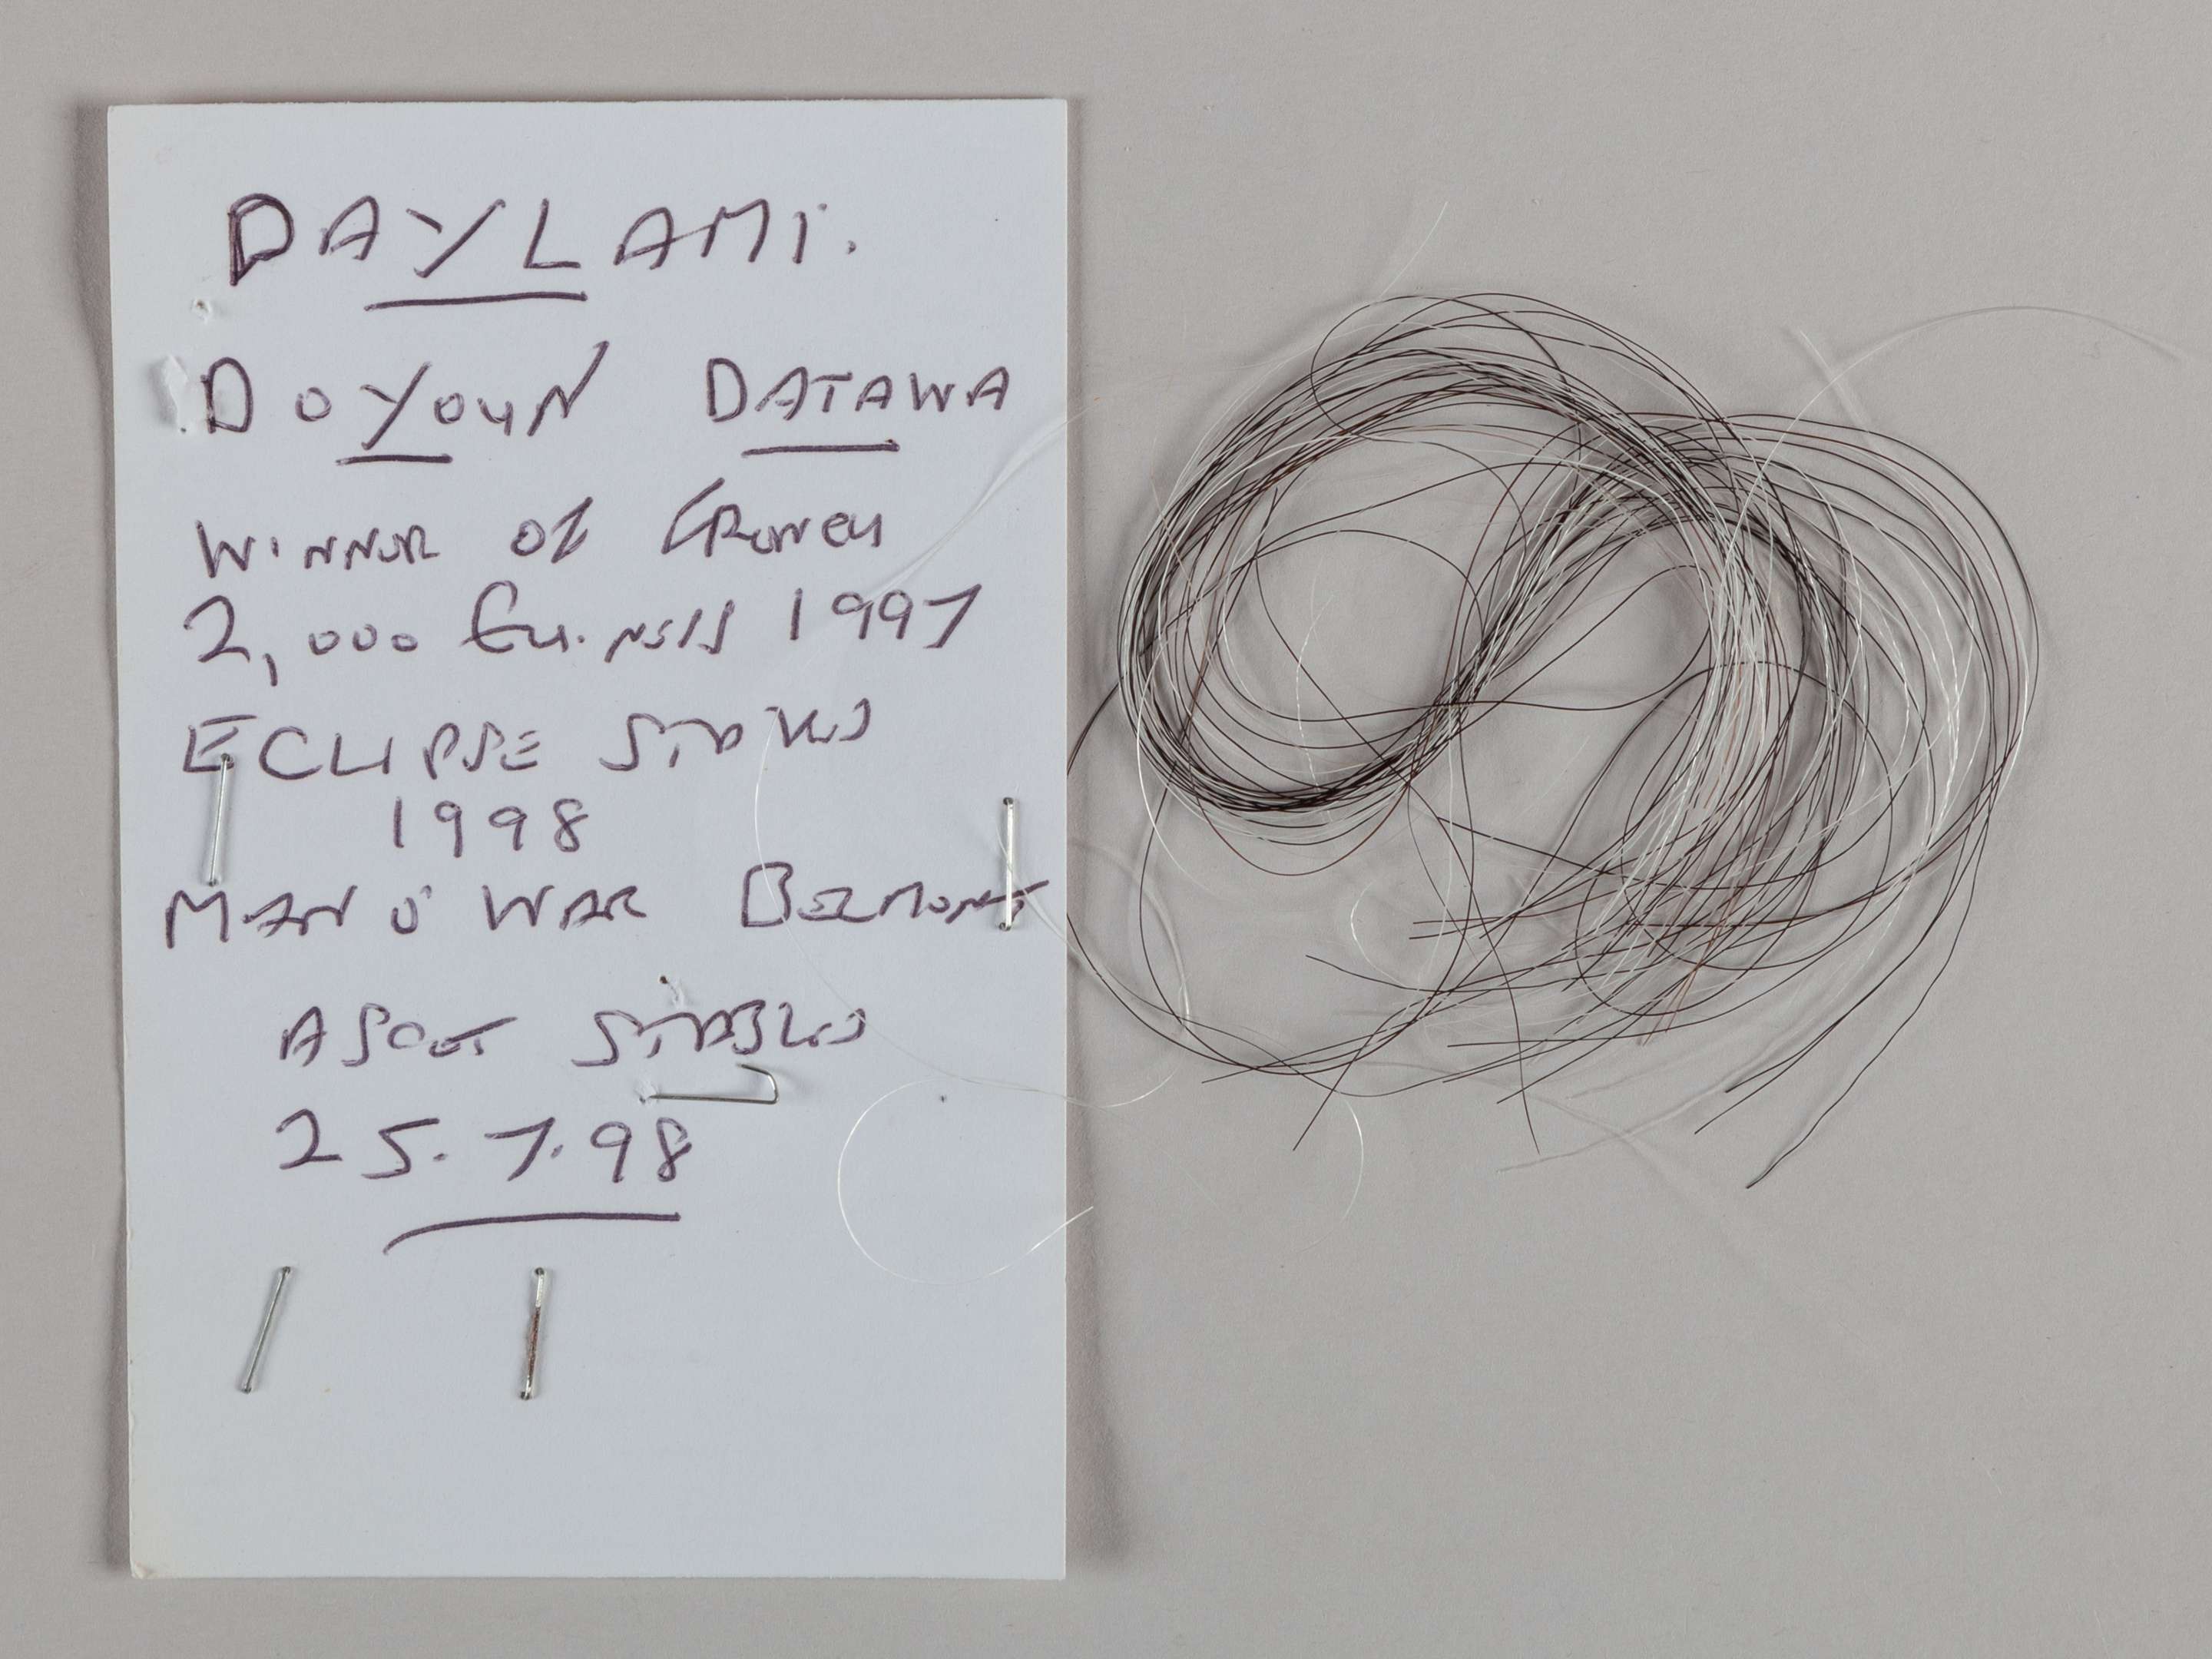 DAYLAMI.
DOYOUN DATAWA
WINNER Of FRENCH
2,000 GUINEIS 1997
ECLIPSE STAKES
1998
MAN O' WAR BELMONT
ASCOT STABLES
25.7.98